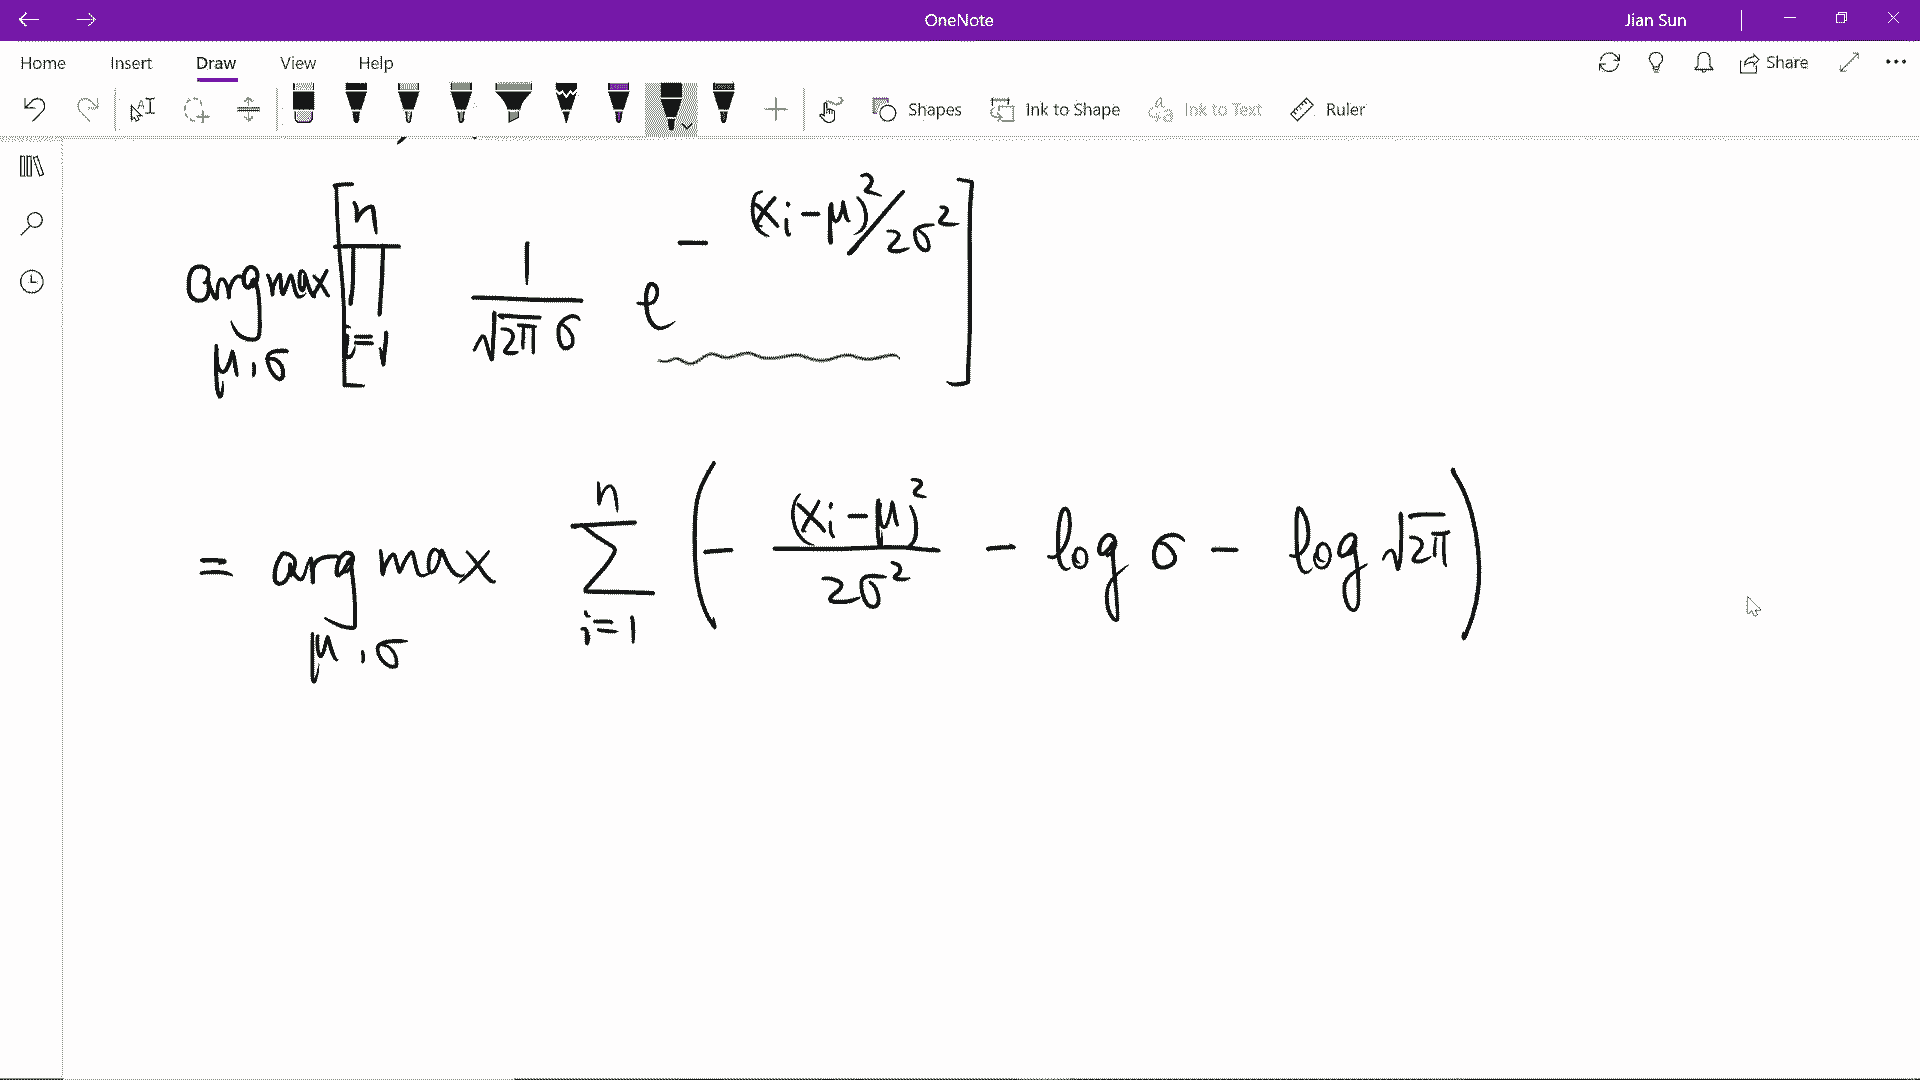 OneNote
Jian Sun
Home Insert Draw View Help
Share
Shapes Ink to Shape Ink to Text Ruler
argmax_{μ,σ} [∏_{i=1}^{n} 1/(√2π σ) e^{-(xᵢ-μ)²/2σ²}]
= argmax_{μ,σ} ∑_{i=1}^{n} (- (xᵢ-μ)²/2σ² - log σ - log √2π)